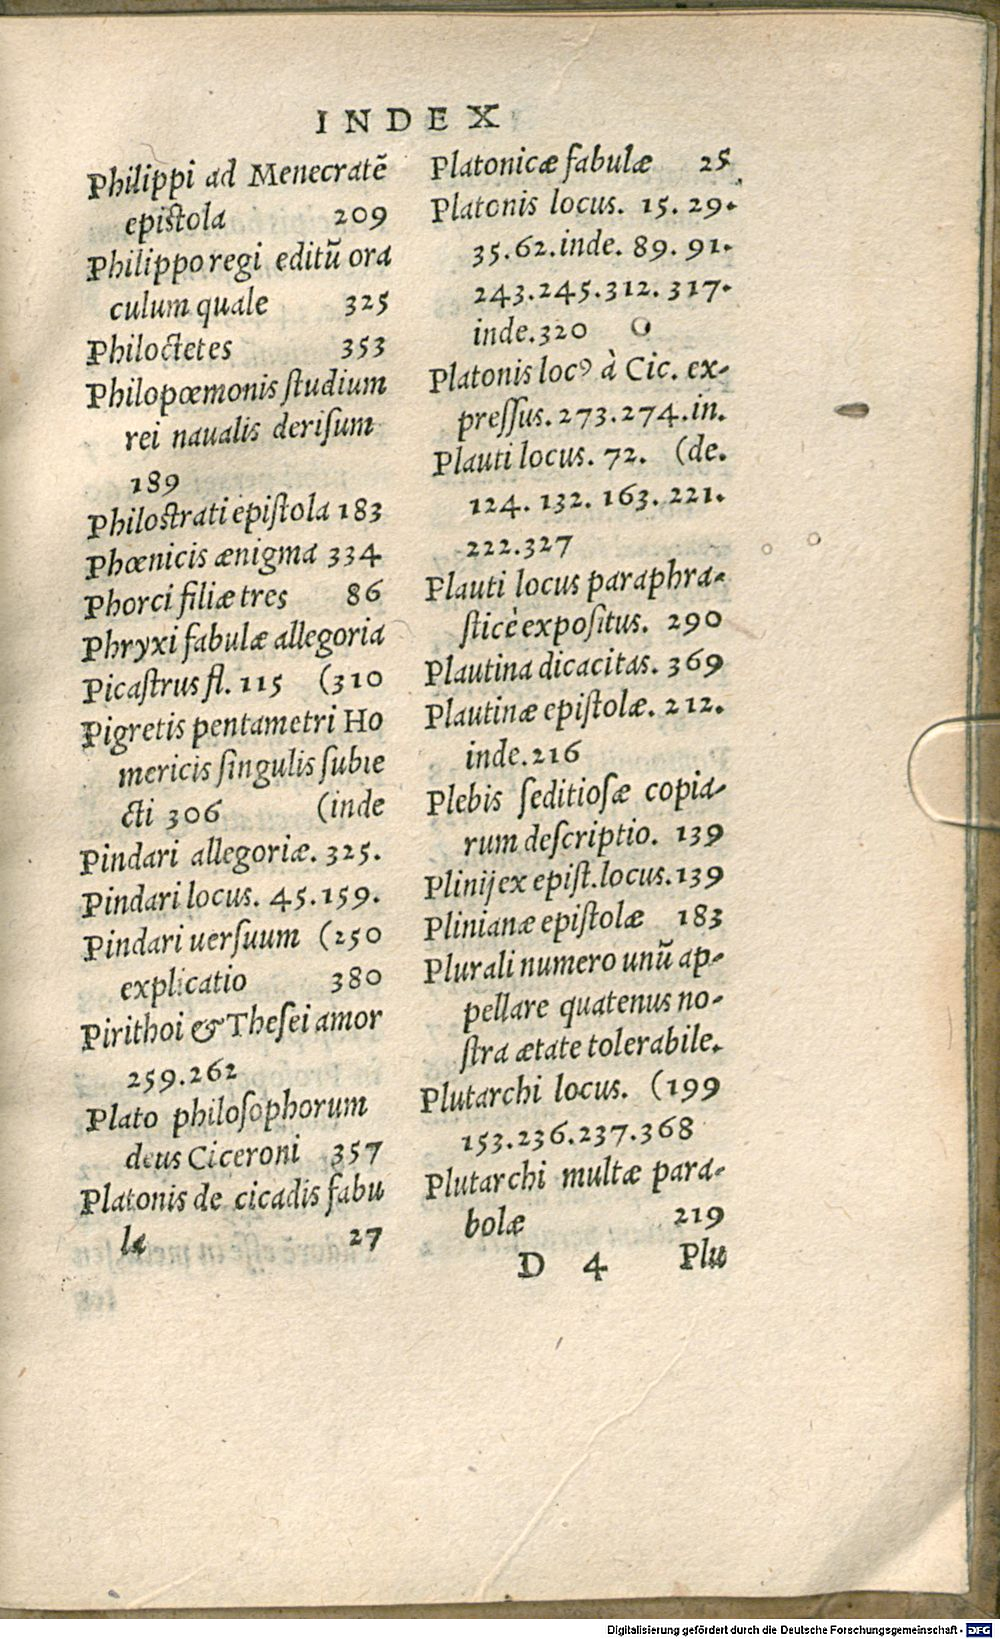 INDEX
Philippi ad Menecratẽ
epistola 209
Philippo regi editũ ora
culum quale 325
Philoctetes 353
Philopœmonis ſtudium
rei naualis deriſum
189
Philoſtrati epiſtola 183
Phœnicis ænigma 334
Phorci filiæ tres 86
Phryxi fabulæ allegoria
Picaſtrus fl. 115 (310
Pigretis pentametri Ho
mericis ſingulis ſubie
cti 306 (inde
Pindari allegoriæ. 325.
Pindari locus. 45.159.
Pindari uerſuum (250
explicatio 380
Pirithoi & Theſei amor
259.262
Plato philoſophorum
deus Ciceroni 357
Platonis de cicadis fabu
la 27
Platonicæ fabulæ 25
Platonis locus. 15. 29.
35.62.inde. 89. 91.
243.245.312. 317.
inde.320
Platonis locꝰ à Cic. ex-
preſſus. 273.274.in.
Plauti locus. 72. (de.
124. 132. 163. 221.
222.327
Plauti locus paraphra-
ſticè expoſitus. 290
Plautina dicacitas. 369
Plautinæ epiſtolæ. 212.
inde.216
Plebis ſeditioſæ copia-
rum deſcriptio. 139
Plinij ex epiſt.locus.139
Plinianæ epiſtolæ 183
Plurali numero unũ ap-
pellare quatenus no-
ſtra ætate tolerabile.
Plutarchi locus. (199
153.236.237.368
Plutarchi multæ para-
bolæ 219
D 4 Plu
Digitalisierung gefördert durch die Deutsche Forschungsgemeinschaft - DFG